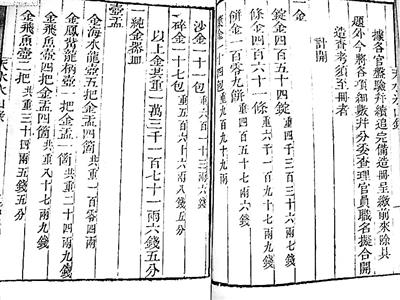 天水冰山錄
據各官盤驗并續追完備造冊呈繳前來除具
題外今將各項細數并分委查理官員職名擬合開
造查考須至冊者
計開
一金
錠金四百五十四錠重四千三百兩七錢
條金四百一十一條共重一千一百九十七兩九錢
餅金一百零九餅重四百五十七兩六錢
金一十四包重一百九十九兩
沙金一十一包重五百一十六兩六錢五分
碎金一十七包重八錢五分
以上金共重一萬三千一百七十一兩六錢五分
一純金器皿
壺盂
金海水龍壺五把金盂四箇共重一百零四兩
金鳳龍柄壺一把金盂一箇共重二十四兩九錢
金飛魚壺四把金盂四箇共重八十七兩九錢
金飛魚壺一把金盂一箇共重三十四兩五錢五分
天水冰山錄